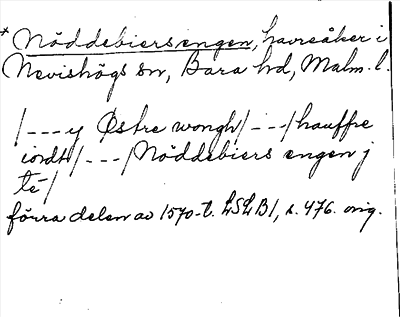 * Nöddebiersengen, havreåker i
Nevishögs sn, Bara hd, Malm. l.
/---y Østre wongh/---/hauffre
iordt/---/Nöddebiers engen j
te-/
förra delen av 1570-t. LSLB1, s. 476. orig.